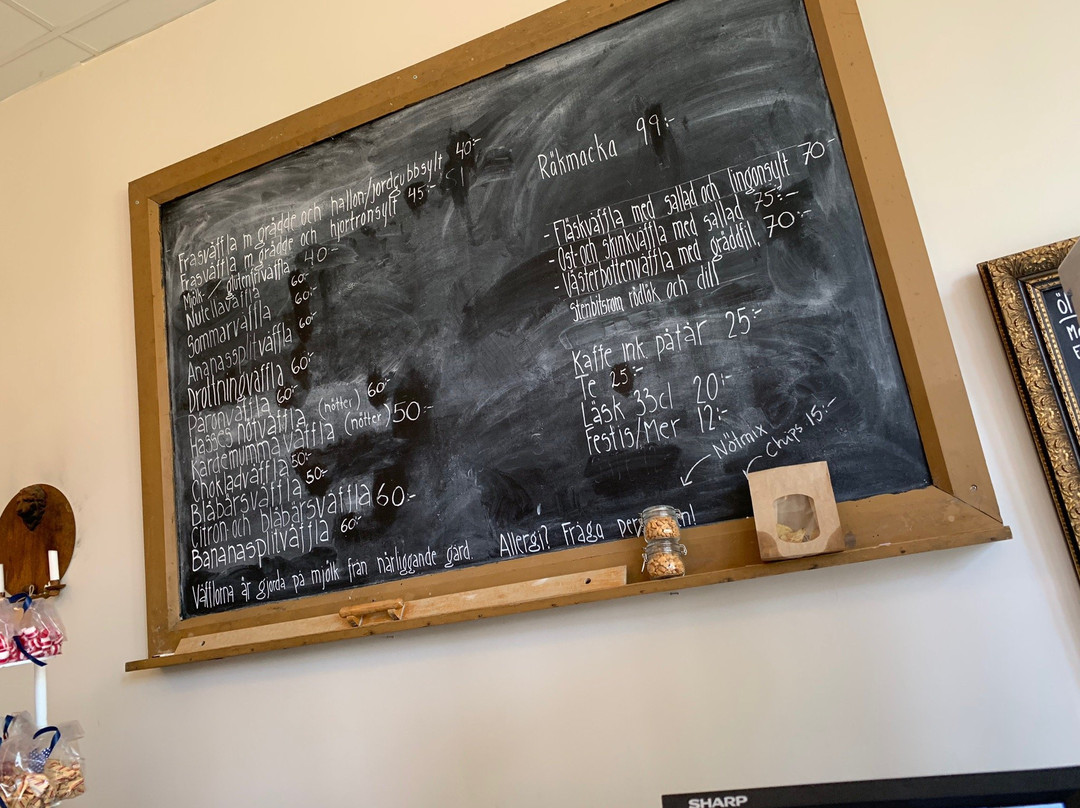 Frasväffla m grädde och hallon-/jordgubbsylt 40:-
Frasväffla m grädde och hjortronsylt 45:-
Mjölk- / glutenfriväffla 40:-
Nutellaväffla 60:-
Sommarväffla 60:-
Ananassplitväffla 60:-
Drottningväffla 60:-
Päronväffla 60:-
Hasses nötväffla (nötter) 60:-
Kardemummaväffla (nötter) 50:-
Chokladväffla 50:-
Blåbärsväffla 50:-
Citron och blåbärsväffla 60:-
Bananasplitväffla 60:-
Våfflorna är gjorda på mjölk från närliggande gård.
Räkmacka 99:-
- Fläskväffla med sallad och lingonsylt 70:-
- Ost-och skinkväffla med sallad 75:-
- Västerbottenväffla med gräddfil, 70:-
Stenbitsrom, rödlök och dill
Kaffe ink påtår 25:-
Te 25:-
Läsk 33cl 20:-
Festis/Mer 12:-
Nötmix
Chips 15:-
Allergi? Fråga
SHARP